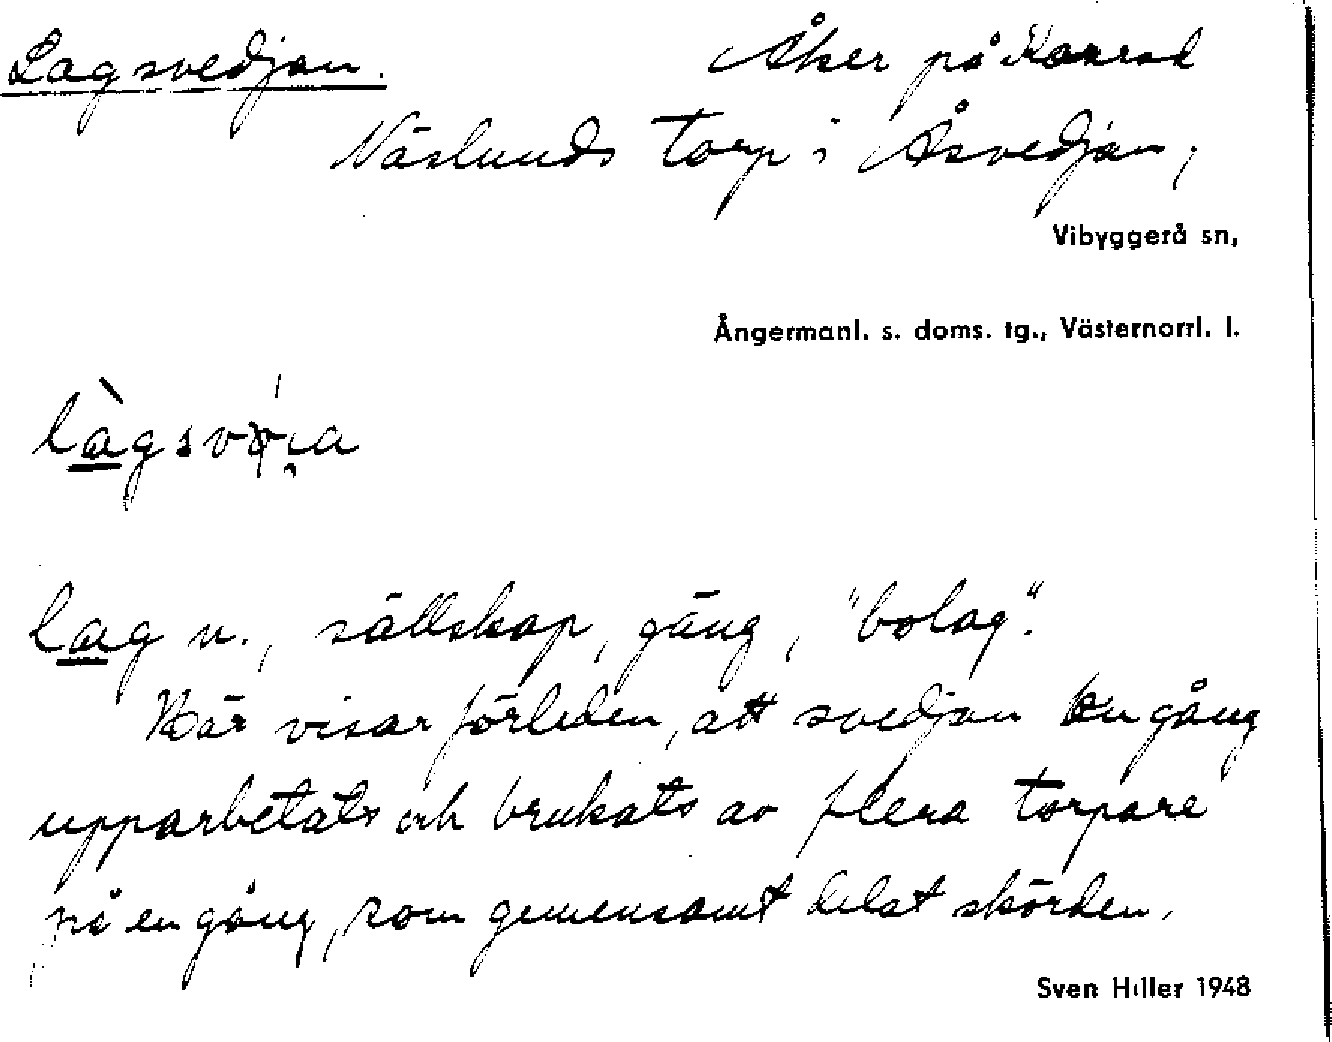 Lagsvedjan. Åker på Konrad
Näslunds torp i Åsvedjan,
Vibyggerå sn,
Ångermanl. s. doms. tg., Västernorrl. l.
lag n., sällskap, gäng, "bolag".
Här visar förleden, att svedjan en gång
upparbetats och brukats av flera torpare
på en gång, som gemensamt delat skörden.
Sven Hiller 1948